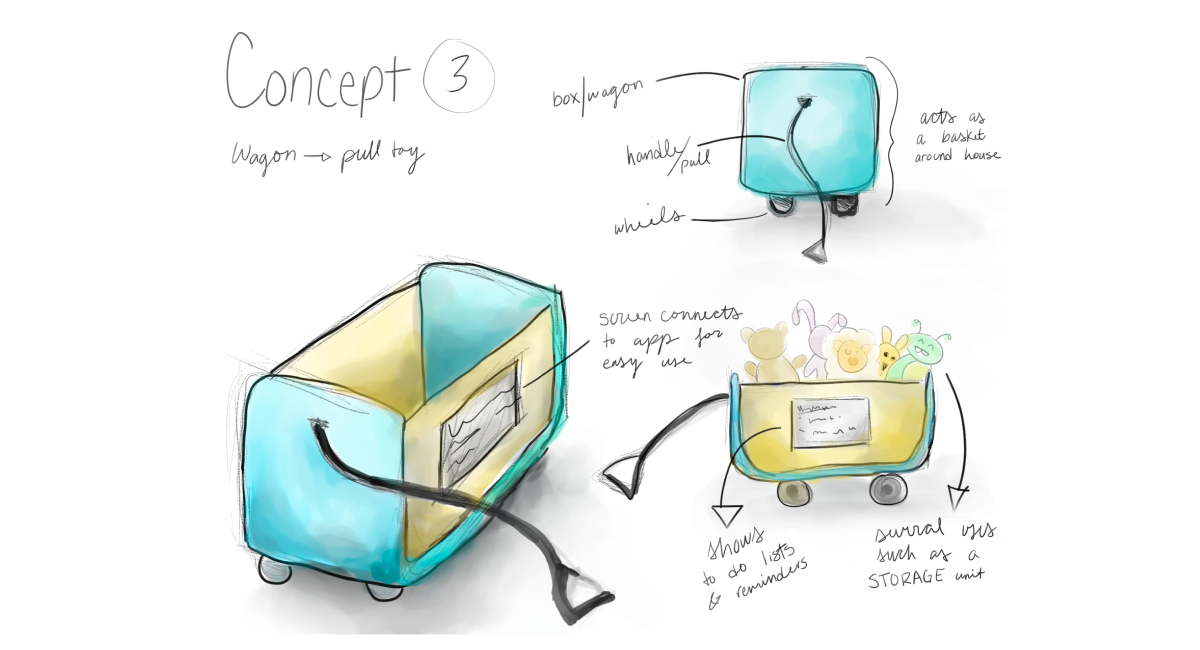 Concept 3
Wagon → pull toy
box/wagon
handle/
pull
wheels
acts as
a basket
around house
screen connects
to app for
easy use
shows
to do lists
& reminders
several uses
such as a
STORAGE unit